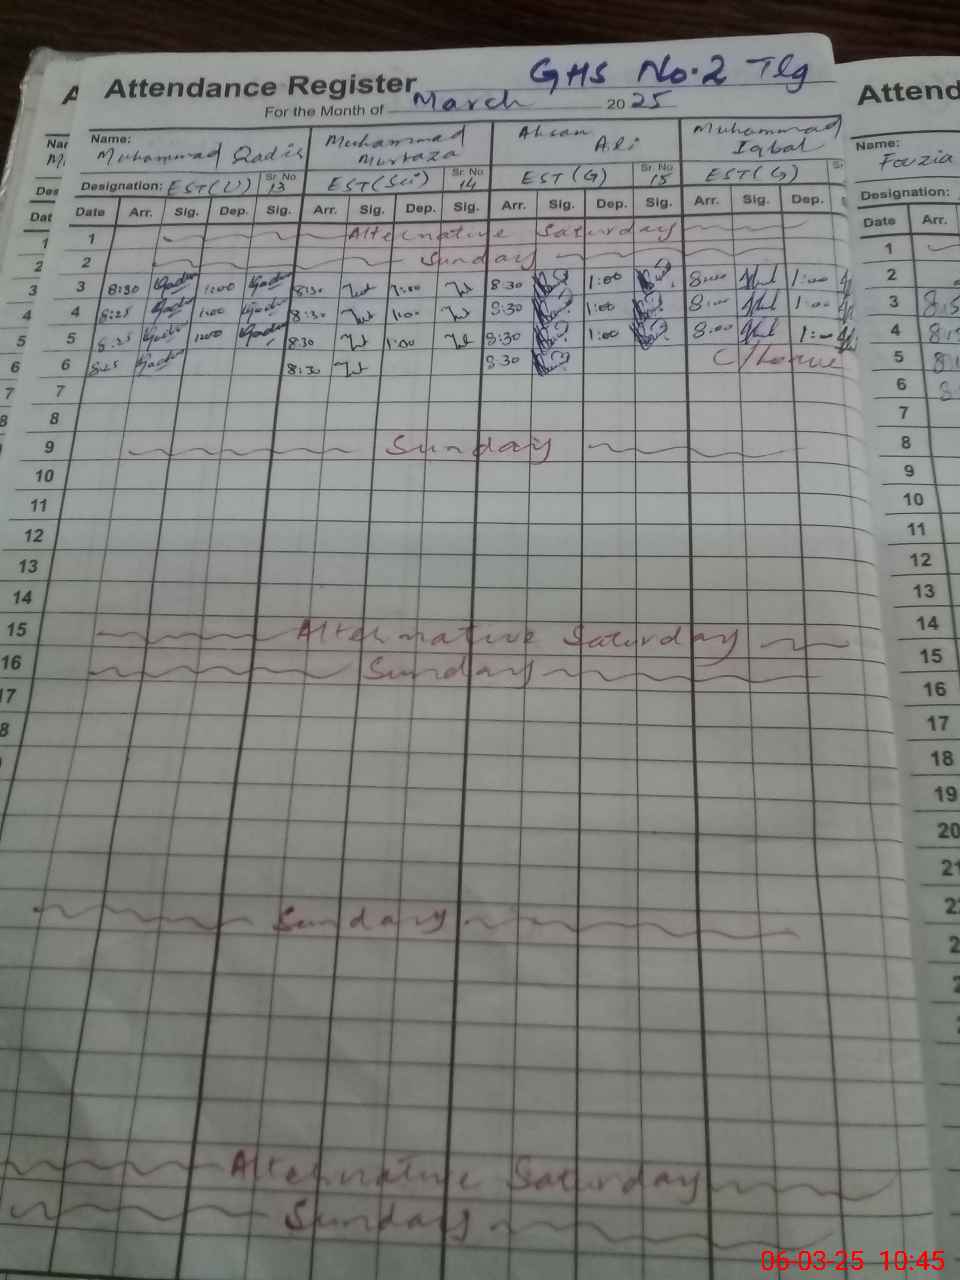 Attendance Register GHS No.2 Tlg
For the Month of March 2025
Name: Muhammad Qadir Muhammad Murtaza Ahsan Ali Muhammad Iqbal
Designation: EST(U) Sr. No 13 EST(Sci) Sr. No 14 EST(G) Sr. No 15 EST(G) Sr
Date Arr. Sig. Dep. Sig. Arr. Sig. Dep. Sig. Arr. Sig. Dep. Sig. Arr. Sig. Dep.
1 Alternative Saturday
2 Sunday
3 8:30 1:00 8:30 1:00 8:30 1:00 8:00 1:00
4 8:25 1:00 8:30 1:00 8:30 1:00 8:00 1:00
5 8:25 1:00 8:30 1:00 8:30 1:00 8:00 1:00
6 8:25 8:30 8:30 C/Leave
7
8
9 Sunday
10
11
12
13
14
15 Alternative Saturday
16 Sunday
17
Sunday
Alternative Saturday
Sunday
Attend
Name: Fouzia
Designation:
Date Arr.
1
2
3
4
5
6
7
8
9
10
11
12
13
14
15
16
17
18
19
20
21
06-03-25 10:45